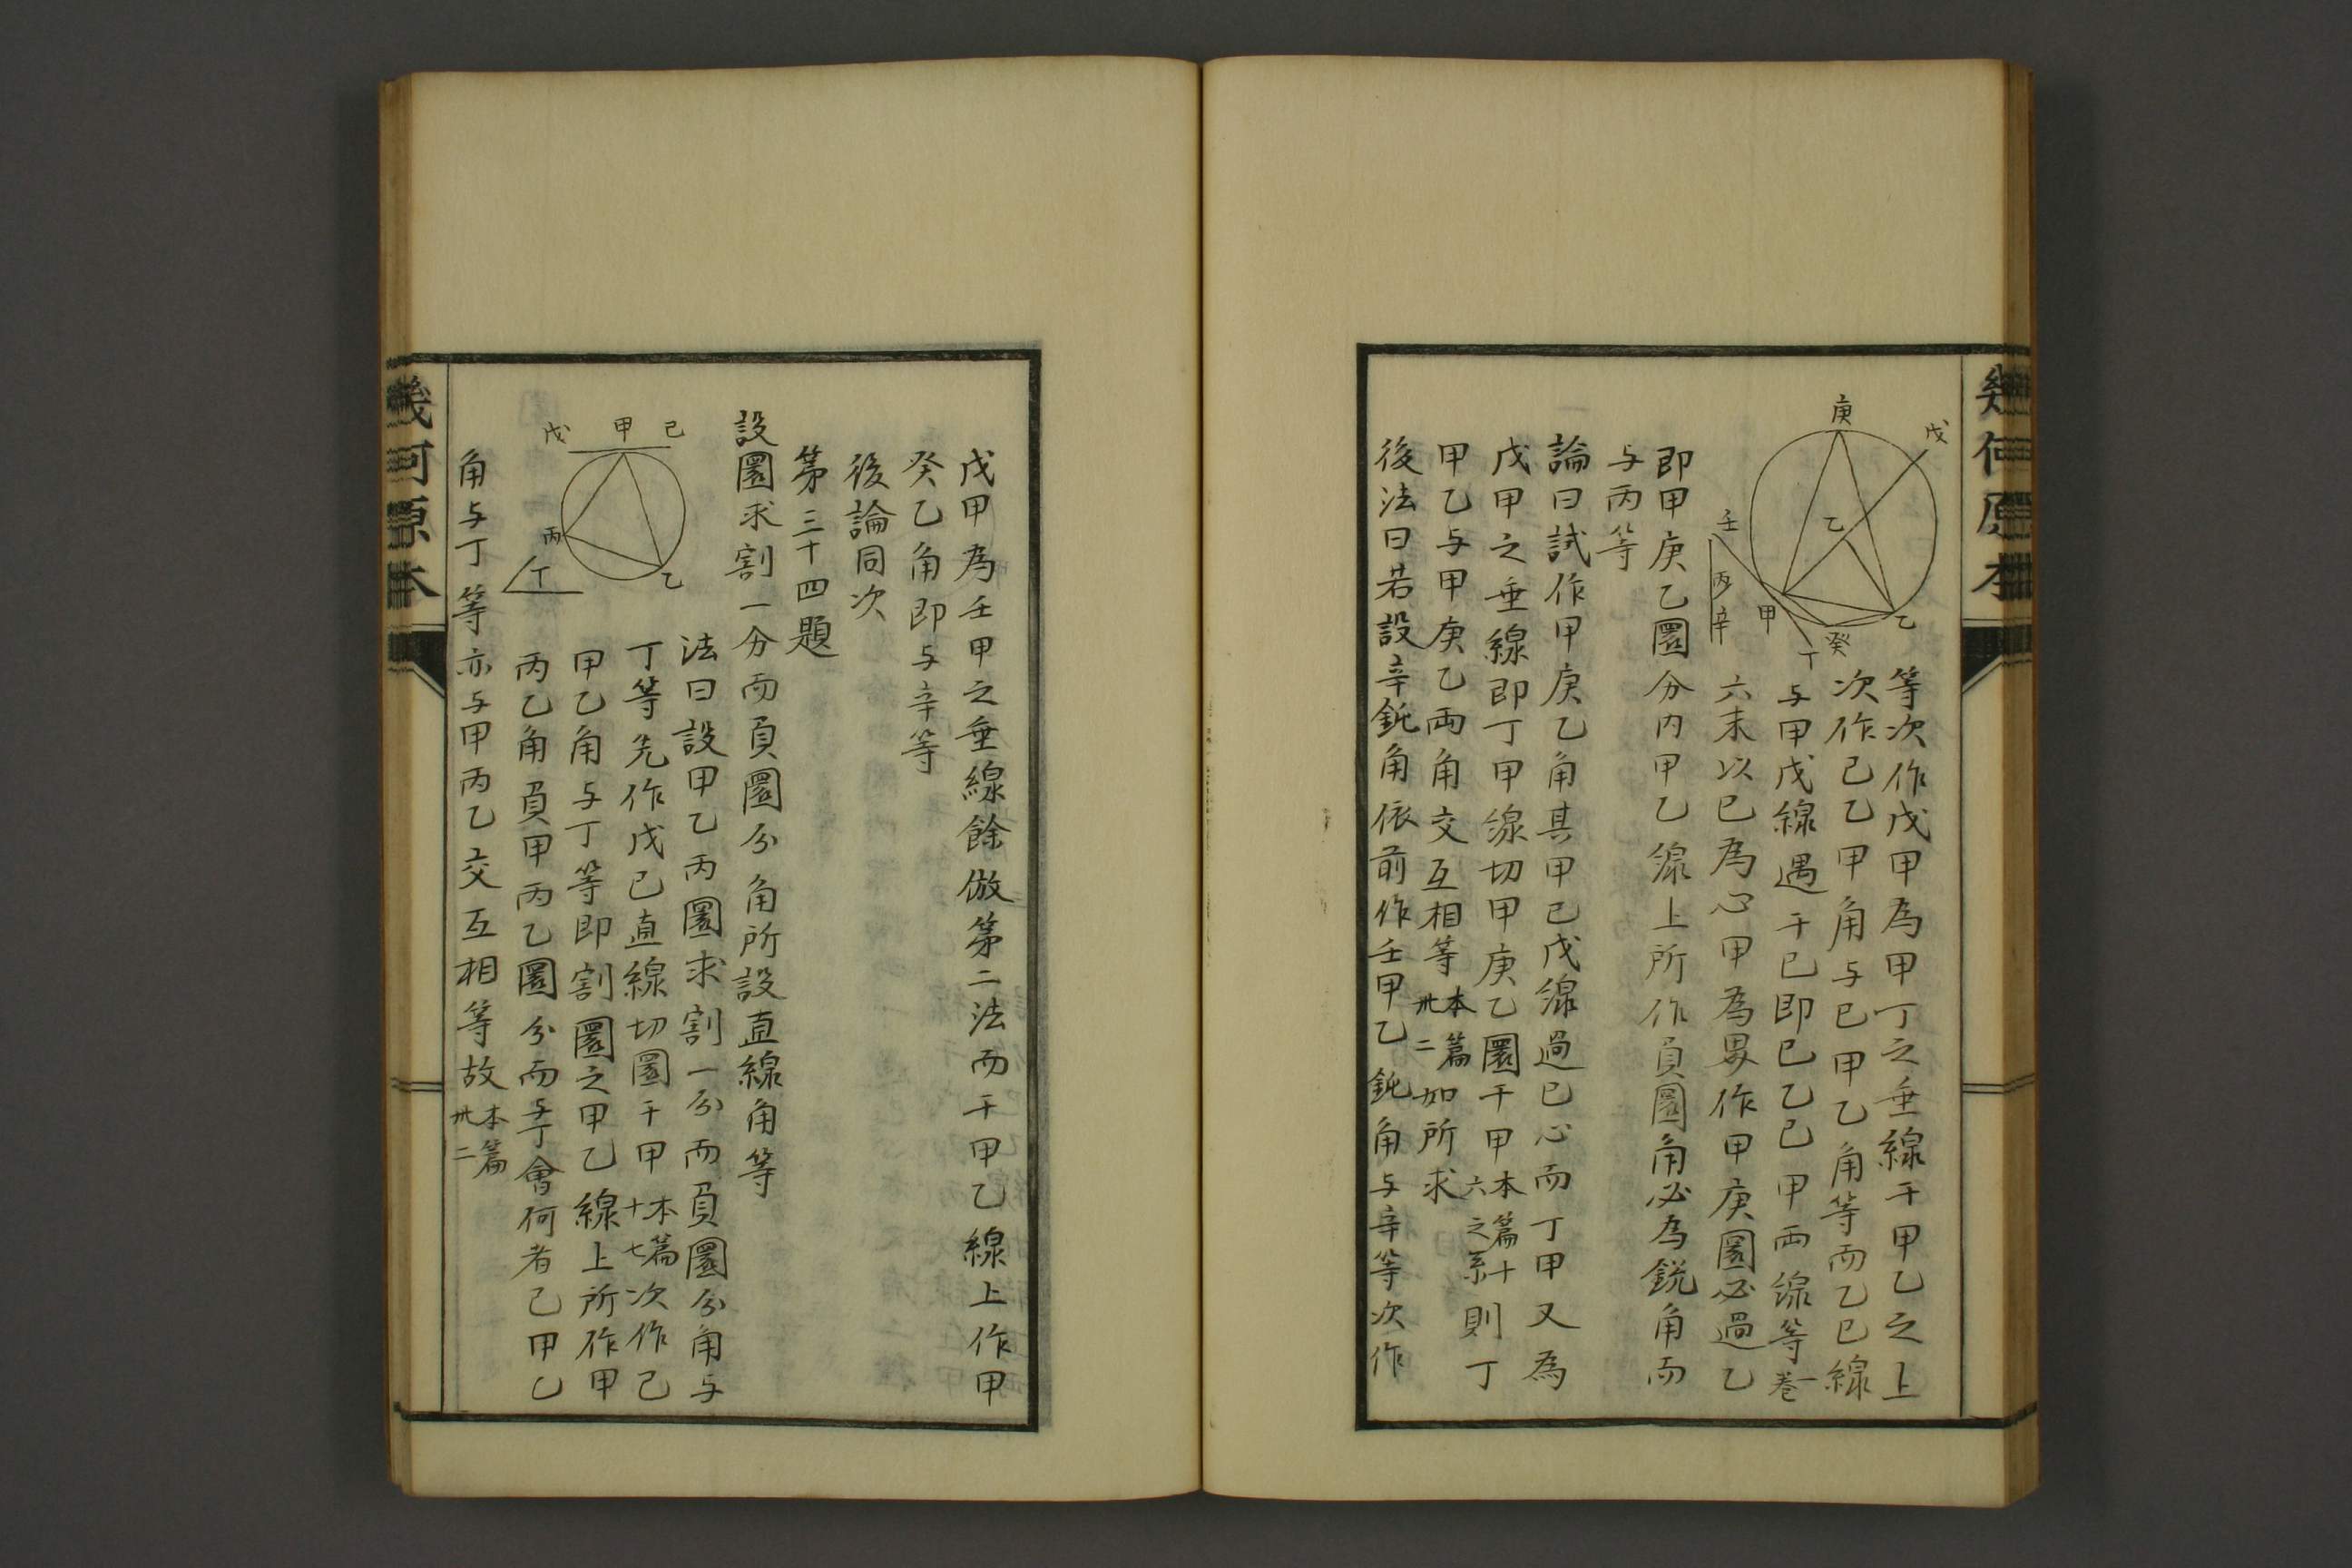 幾何原本
庚
戊
己
壬
丙
辛
甲
乙
丁
癸
等次作戊甲為甲丁之垂線于甲乙之上
次作己乙甲角与己甲乙角等而乙己線
与甲戊線遇于己即己乙己甲兩線等一卷
六末以己為心甲為界作甲庚圜必過乙
即甲庚乙圜分内甲乙線上所作負圜角必為鋭角而
与丙等
論曰試作甲庚乙角其甲己戊線過己心而丁甲又為
戊甲之垂線即丁甲線切甲庚乙圜于甲本篇十六之系則丁
甲乙与甲庚乙兩角交互相等本篇卅二如所求
後法曰若設辛鈍角依前作壬甲乙鈍角与辛等次作
戊甲為壬甲之垂線餘倣第二法而于甲乙線上作甲
癸乙角即与辛等
後論同次
第三十四題
設圜求割一分而負圜分角所設直線角等
戊
甲
己
丙
乙
丁
法曰設甲乙丙圜求割一分而負圜分角与
丁等先作戊己直線切圜于甲本篇十七次作己
甲乙角与丁等即割圜之甲乙線上所作甲
丙乙角負甲丙乙圜分而与丁會何者己甲乙
角与丁等亦与甲丙乙交互相等故本篇卅二
幾何原本